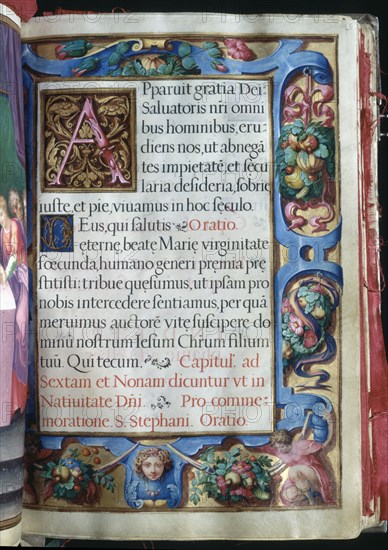 Apparuit gratia Dei
Saluatoris nr̃i omni
bus hominibus, eru
diens nos, ut abnegã
tes impietatẽ, et sęcu
laria desideria, sobrie
iuste, et pie, viuamus in hoc sęculo.
Deus, qui salutis Oratio.
ęternę, beatę Marię virginitate
fœcunda, humano generi pręmia prę
stitisti: tribue quęsumus, ut ipsam pro
nobis intercedere sentiamus, per quã
meruimus auctorẽ vitę suscipere do
minũ nostrum Iesum Chrũm filium
tuũ. Qui tecum. Capitul'. ad
Sextam et Nonam dicuntur vt in
Natiuitate Dñi. Pro comme
moratione. S. Stephani. Oratio.